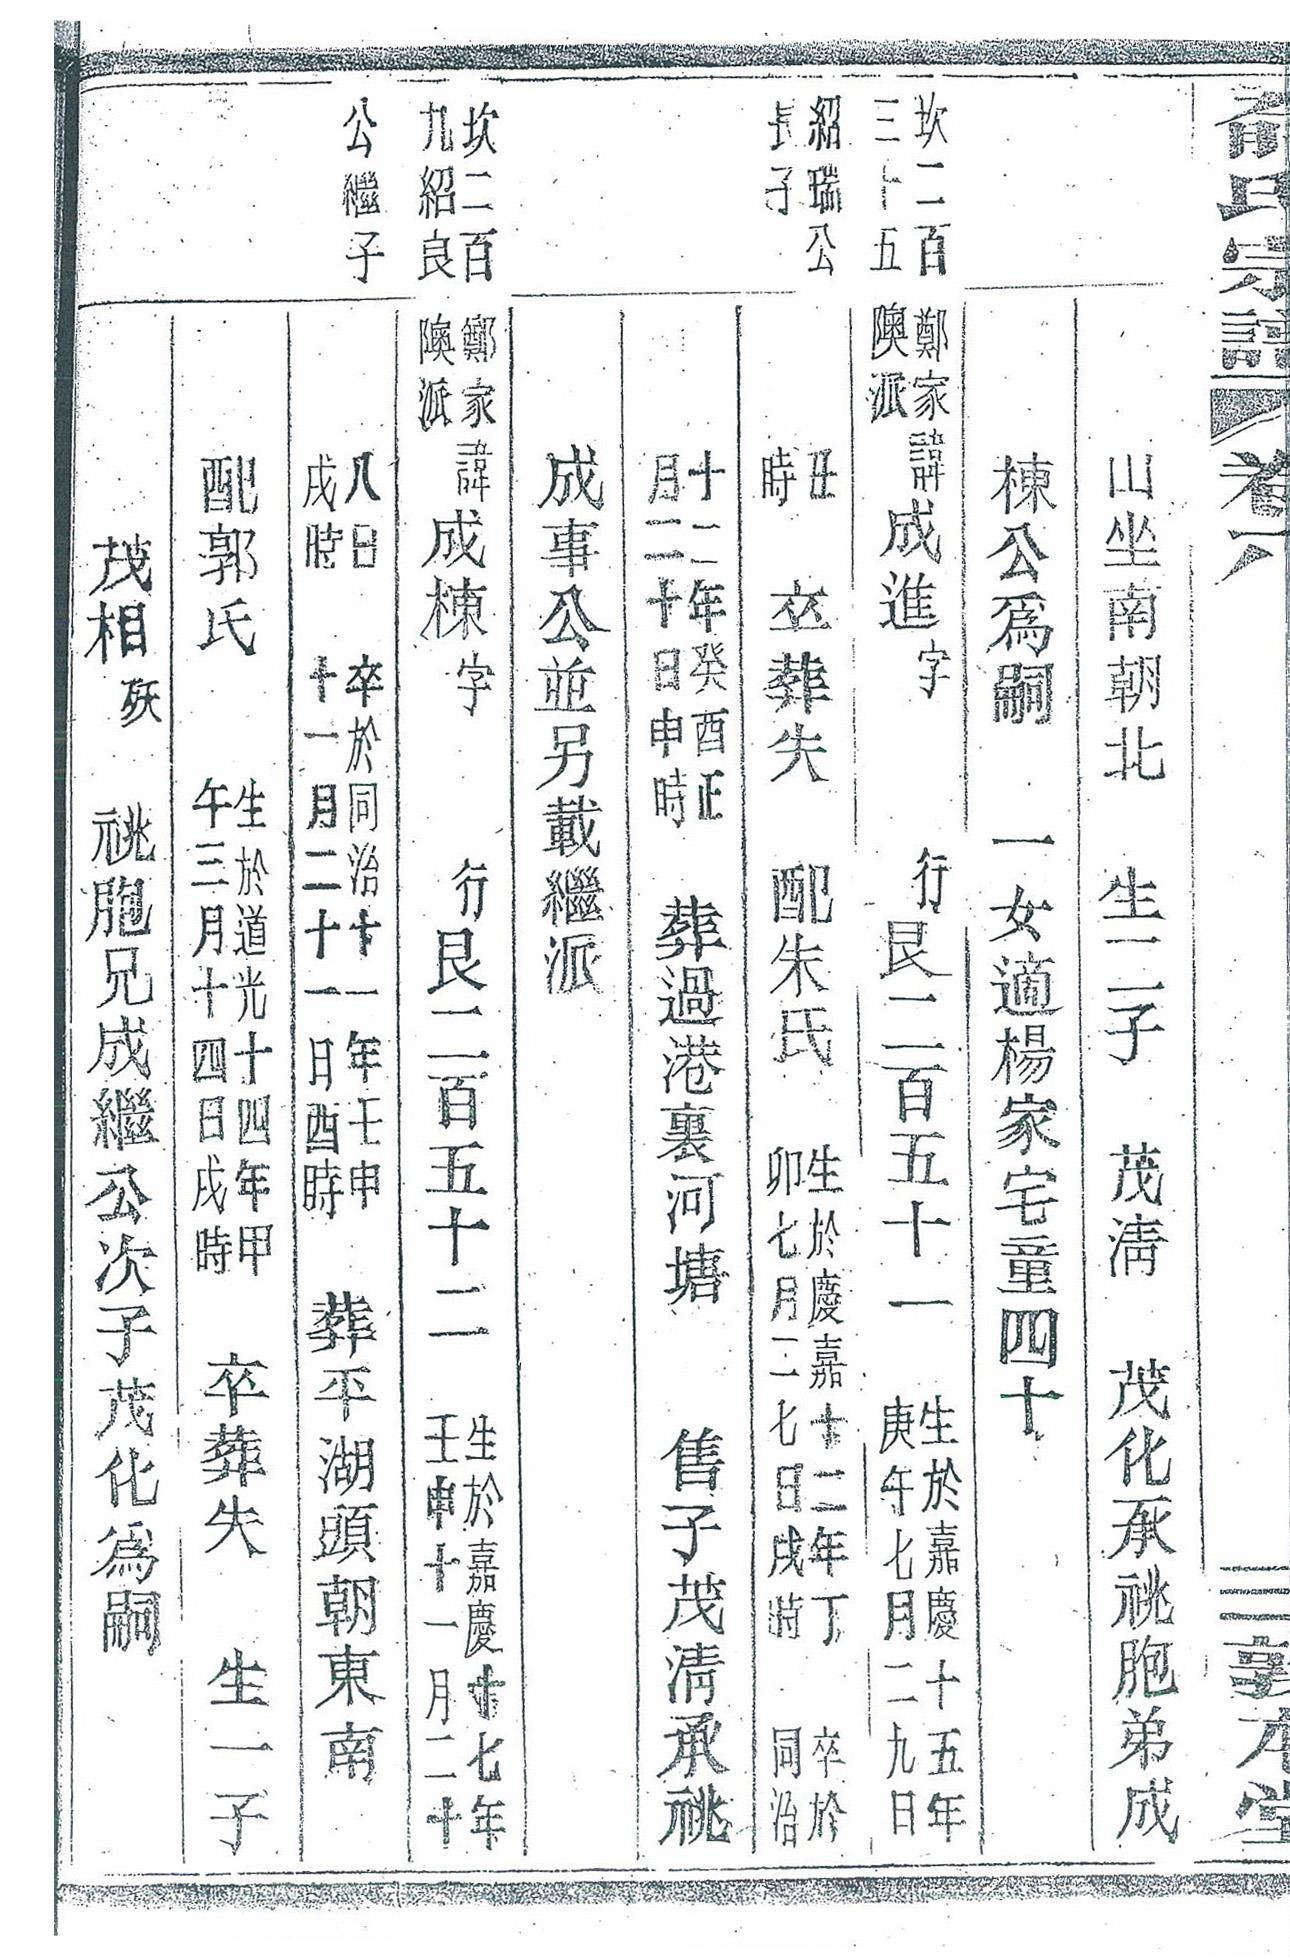 氏宗譜 卷 三 敦本堂
山坐南朝北 生二子 茂淸 茂化承祧胞弟成
棟公爲嗣 一女適楊家宅童四十
坎二百三十五 鄭家隩派 諱成進字 行艮二百五十一 生於嘉慶十五年庚午七月二九日
紹瑞公長子 丑時 卒葬失 配朱氏 生於慶嘉十二年丁卯七月二七日戌時 卒於同治
十二年癸酉正月二十日申時 葬過港裏河塘 售子茂淸承祧
成事公並另載繼派
坎二百九紹良 鄭家隩派 諱成棟字 行艮二百五十二 生於嘉慶十七年壬申十一月二十
公繼子 八日戌時 卒於同治十一年壬申十一月二十一日酉時 葬平湖頭朝東南
配郭氏 生於道光十四年甲午三月十四日戌時 卒葬失 生一子
茂相殀 祧胞兄成繼公次子茂化爲嗣